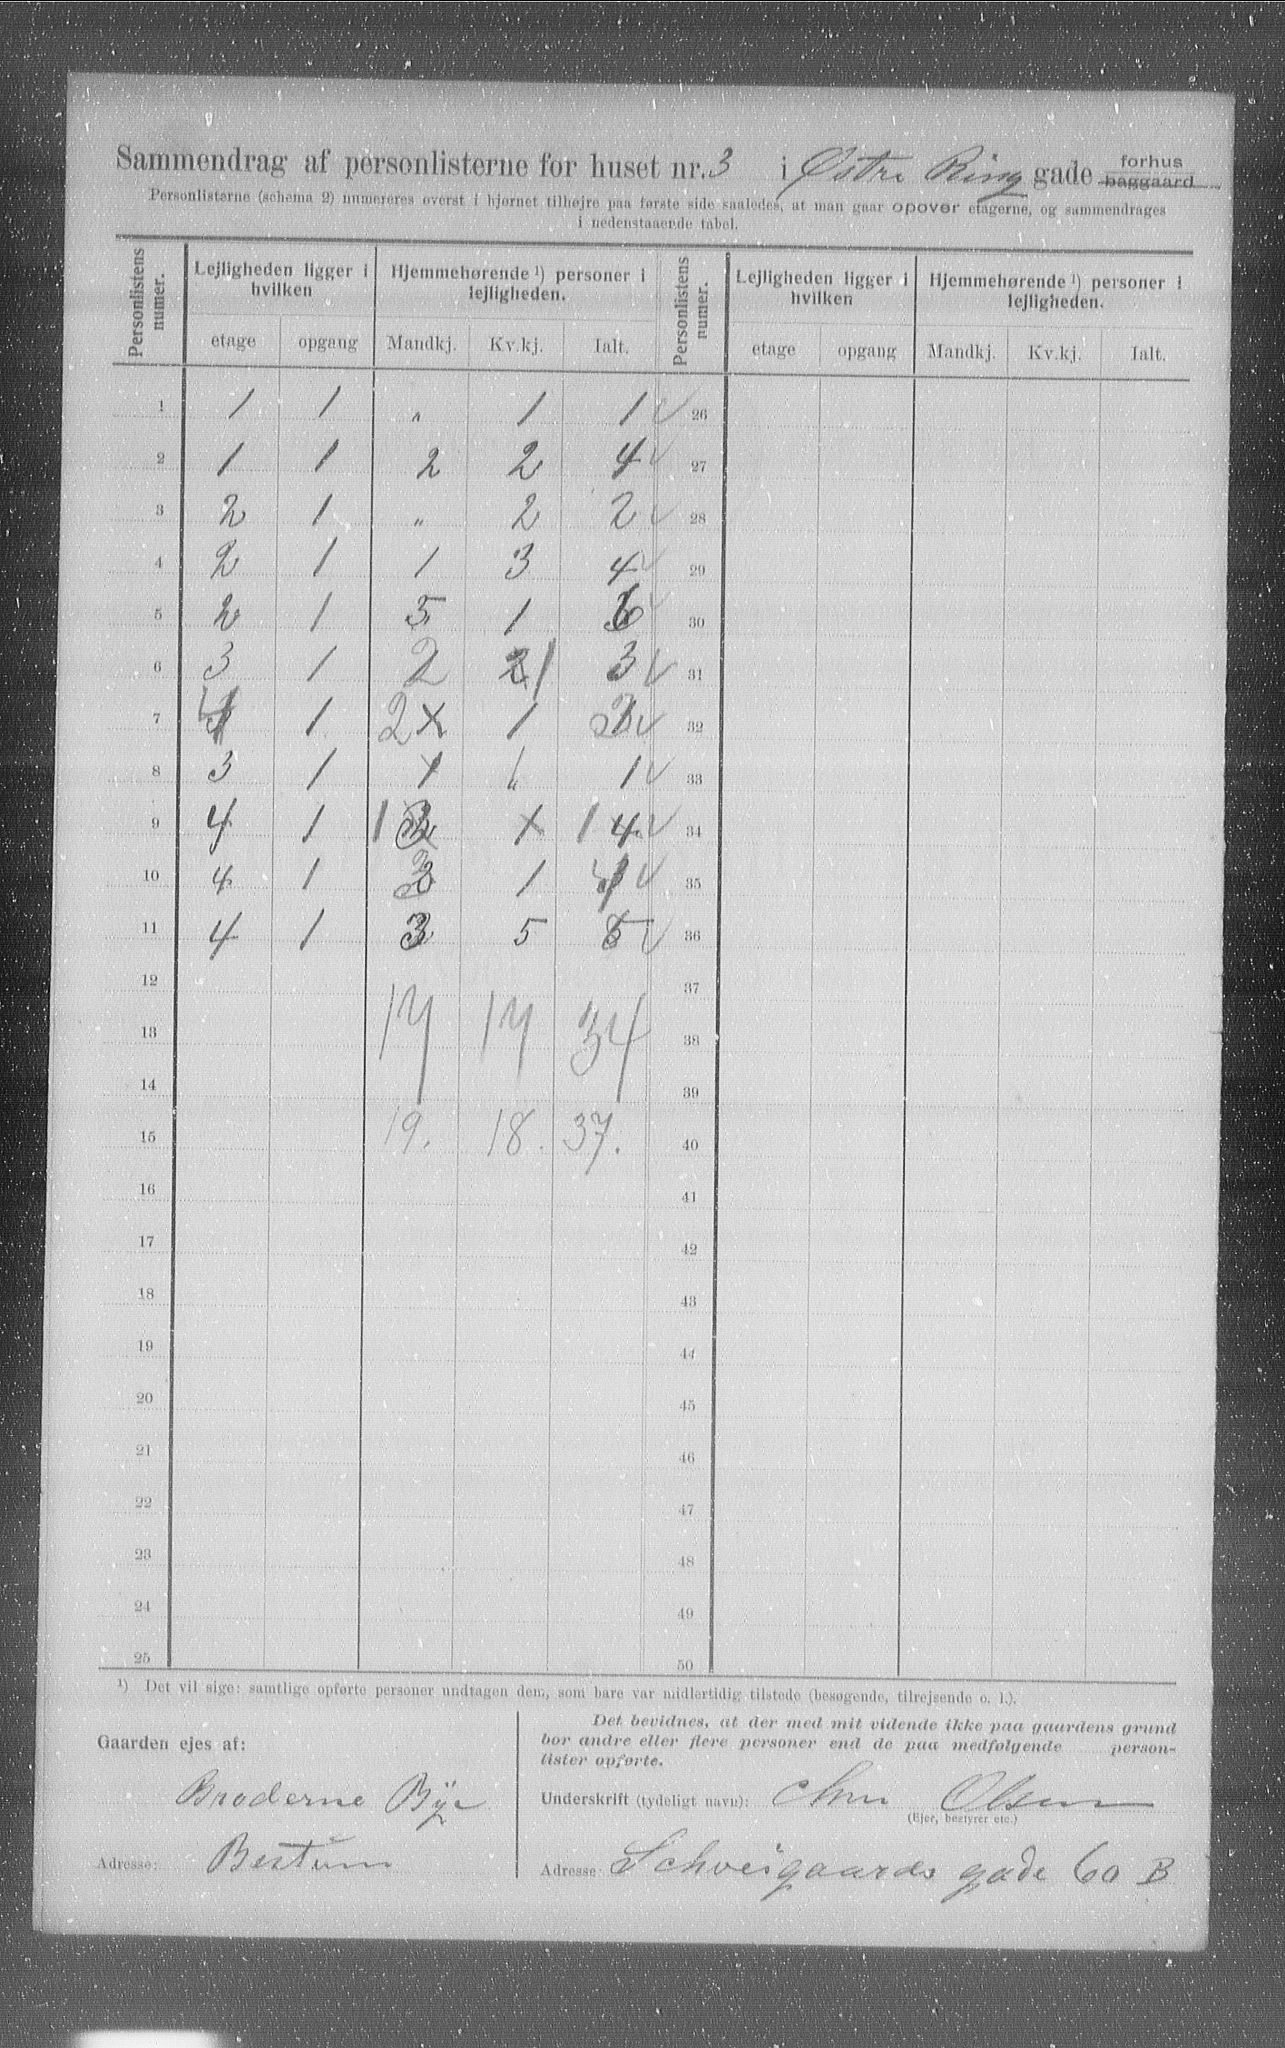 Sammendrag af personlisterne for huset nr. 3 i Østre Ring gade forhus baggaard
Personlisterne (schema 2) numereres øverst i hjørnet tilhøjre paa første side saaledes, at man gaar opover etagerne, og sammendrages
i nedenstaaende tabel.
Personlistens numer. Lejligheden ligger i hvilken Hjemmehørende ¹) personer i lejligheden. Personlistens numer. Lejligheden ligger i hvilken Hjemmehørende ¹) personer i lejligheden.
etage opgang Mandkj. Kv.kj. Ialt. etage opgang Mandkj. Kv.kj. Ialt.
1 1 1 „ 1 1 ✓ 26
2 1 1 2 2 4 ✓ 27
3 2 1 „ 2 2 ✓ 28
4 2 1 1 3 4 ✓ 29
5 2 1 5 1 6 ✓ 30
6 3 1 2 1 3 ✓ 31
7 1 2 1 3 ✓ 32
8 3 1 1 „ 1 ✓ 33
9 4 1 1 1 4 ✓ 34
10 4 1 3 1 4 ✓ 35
11 4 1 3 5 8 ✓ 36
12 37
13 17 17 34 38
14 39
15 19. 18. 37. 40
16 41
17 42
18 43
19 44
20 45
21 46
22 47
23 48
24 49
25 50
¹) Det vil sige: samtlige opførte personer undtagen dem, som bare var midlertidig tilstede (besøgende, tilrejsende o. l.).
Gaarden ejes af:
Brøderne Bÿe
Adresse: Bestum
Det bevidnes, at der med mit vidende ikke paa gaardens grund
bor andre eller flere personer end de paa medfølgende person-
lister opførte.
Underskrift (tydeligt navn): Chr. Olsen
(Ejer, bestyrer etc.)
Adresse: Schveigaards gade 60 B